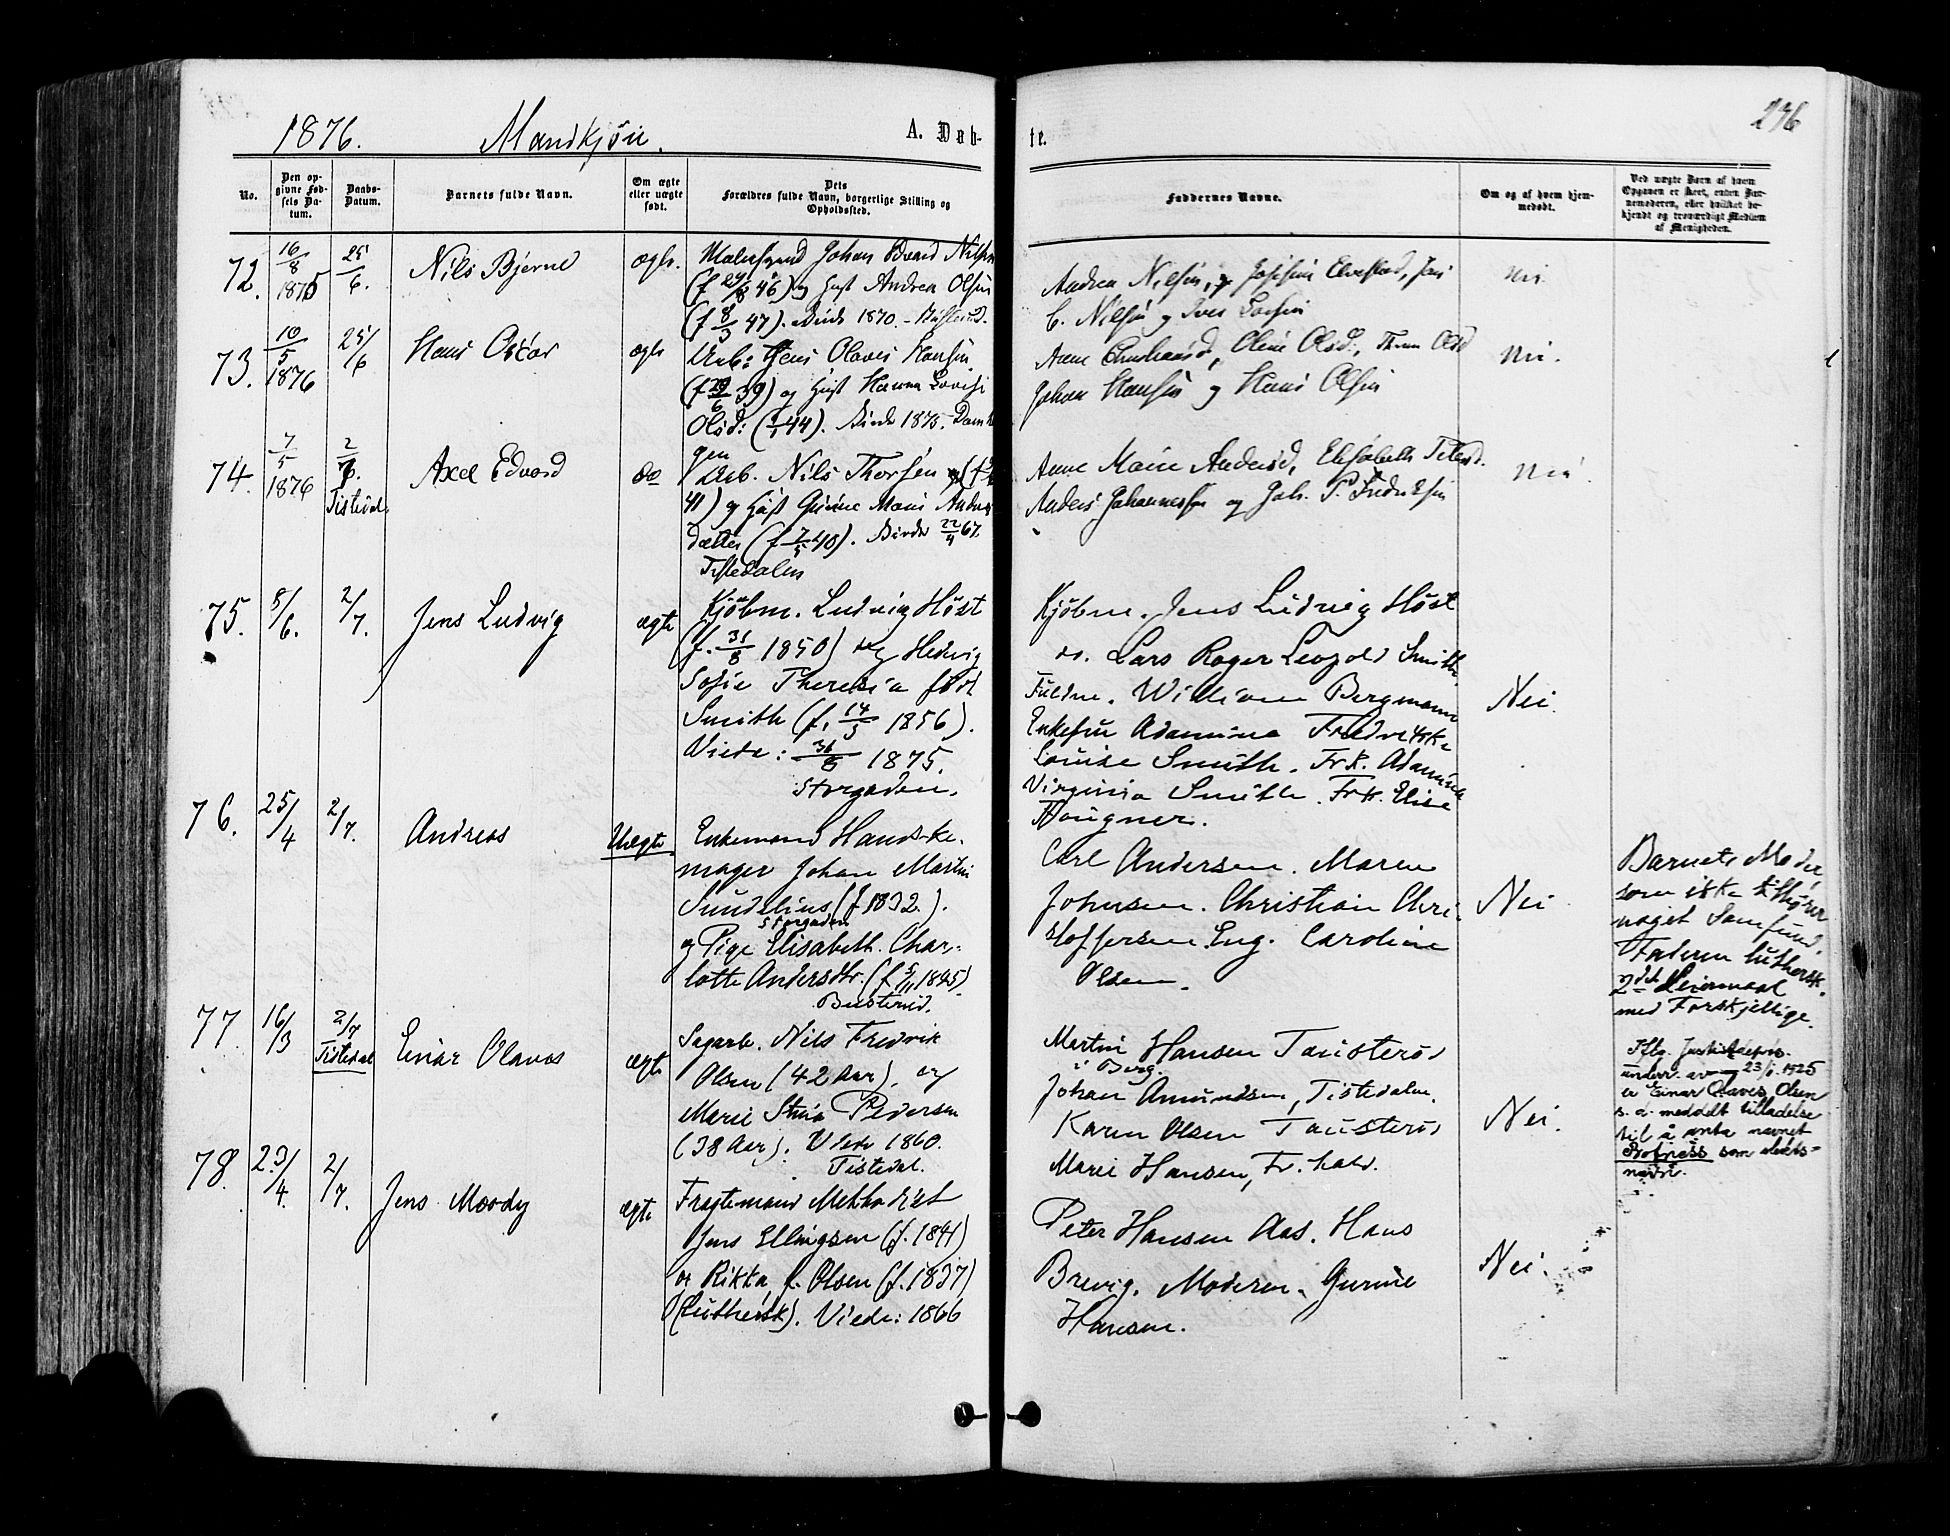 1876. Mandkjön. A. Døb-
te. 246
No.
Den op-
givne Fød-
sels Da-
tum.
Daabs-
Datum.
Barnets fulde Navn.
Om ægte
eller uægte
født.
Dets
Forældres fulde Navn, borgerlige Stilling og
Opholdssted.
Faddernes Navne.
Om og af hvem hjem-
medøbt.
Ved uægte Børn af hvem
Opgaven er skeet, enten Bar-
nemoderen, eller hvilket be-
kjendt og troværdigt Medlem
af Menigheden.
72. 16/8 1875 25/6. Nils Bjerne ægte.
Johan Edvard Nilsen
(f 24/8 46) og Hust Andrea Olsen
(f 8/3 47). Viede 1870.
Andrea Nilsen, Josefine
C. Nilsen og Iver
Nei
73. 10/5 1876 25/6 Hans Oscar ægte
Arb: Jens Olaves Hansen
(f 29/6 39) og Hust Hanna Lovise
Olsd: 44). Viede 1875.
Anne Oline Olsd:,
Johan Hansen og Hans Olsen
Nei.
74. 7/5 1876 2/7. Tistedal. Axel Edvard do
Arb. Nils Thorsen (f
41) og Hust Gunine Marie Anders
datter (f 7/5 40). Viede 22/4 67.
Tistedalen
Anne Marie Andersd, Elisabeth
Anders Johannessen og Joh. P. Fredriksen
Nei
75. 8/6. 2/7. Jens Ludvig ægte
Kjøbm. Ludvig Høst
(f. 31/8 1850) og Hedvig
Sofie Theresia født
Smith (f. 14/3 1856).
Viede: 31/8 1875.
Storgaden.
Kjøbm. Jens Ludvig Høst
do. Lars Roger Leopold Smith
Fuldm. William Bergmann
Enkefru Adamine Fredrikke
Louise Smith. Frk. Adamine
Virginia Smith. Frk. Elise
Hougner.
Nei.
76. 25/4 2/7. Andreas Uægte
Enkemand Handske-
mager Johan Martin
Sundelius (f 1832.).
Storgaden
og Pige Elisabeth Char-
lotte Andersdtr. (f 5/11 1845).
Busterud.
Carl Andersen. Maren
Johnsen. Christian Chri-
stoffersen Eng. Caroline
Olsen.
Nei
Barnets Moder,
som ikke tilhører
noget Samfund.
Faderen luthersk.
2det Leiermaal
med Forskjellige.
77. 16/3 2/7 Tistedal Einar Olavos ægte
Sagarb. Nils Fredrik
Olsen (42 Aar), og
Marie Stina Pedersen
(38 Aar). Viede 1860.
Tistedal.
Martin Hansen Tousterød
i Berg.
Johan Amundsen, Tistedalen.
Karen Olsen Tousterød
Marie Hansen, Fr. hald.
Nei.
Iflg. Justisdeps.
underr. av 23/1 1925
er Einar Olaves Olsen
s. d. meddelt tilladelse
til å anta navnet
som slekts-
navn.
78. 23/4. 2/7. Jens Moody ægte
Fragtemand Methodist
Jens Ellingsen (f. 1841)
og Rikka, f. Olsen (f. 1837)
(Luthersk). Viede: 1866
Peter Hansen Aas. Hans
Brevig. Moderen. Gurine
Hansen.
Nei.